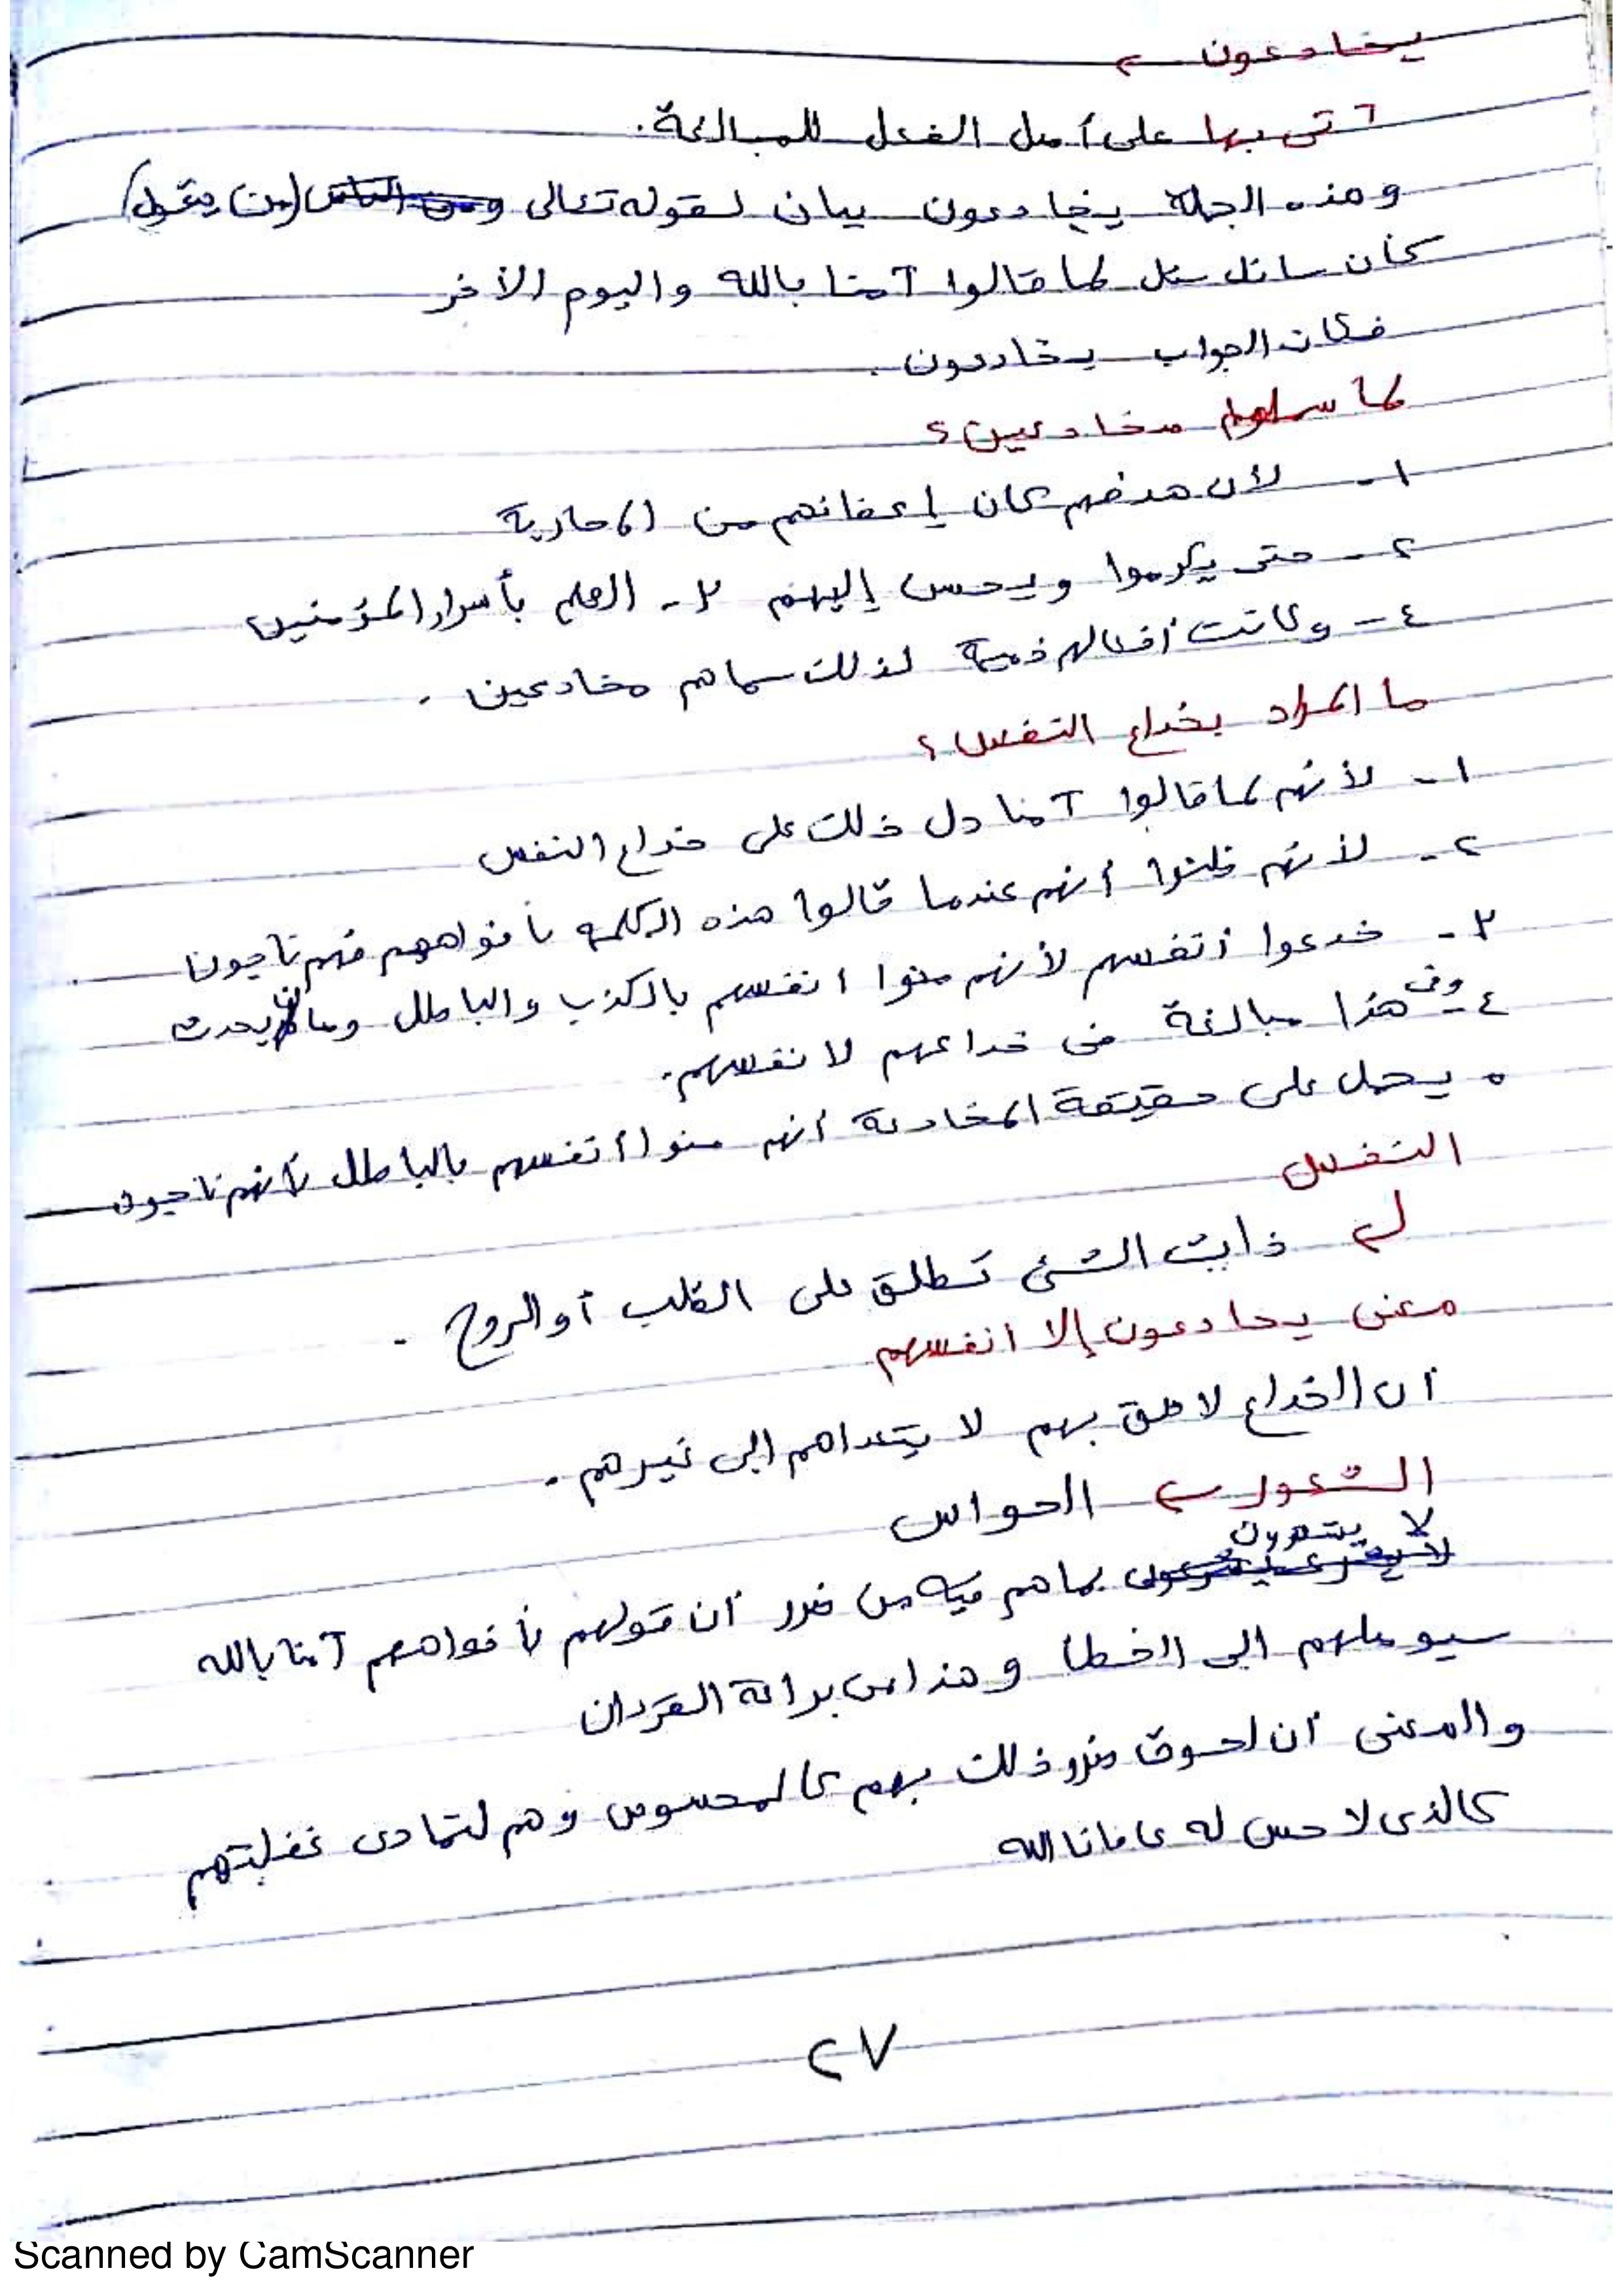 يخادعون ←
أتى بها على أصل الفعل للمبالغة.
وهذه الجملة يخادعون بيان لقوله تعالى ومن الناس (من يقول)
كأن سائل سئل لما قالوا آمنا بالله واليوم الآخر
فكان الجواب يخادعون.
لما مخادعين؟
١- لأن هدفهم كان إعفائهم من المحاربة
٢- حتى يكرموا ويحسن إليهم ٣- العلم بأسرار المؤمنين
٤- وكانت أفعالهم ذميمة لذلك سماهم مخادعين.
ما المراد بخداع النفس؟
١- لأنهم لما قالوا آمنا دل ذلك على خداع النفس
٢- لأنهم ظنوا أنهم عندما قالوا هذه الكلمه بأفواههم فهم ناجون.
٣- خدعوا أنفسهم لأنهم منوا انفسهم بالكذب والباطل وما يحدث
٤- وفى هذا مبالغة فى خداعهم لانفسهم.
٥ يحمل على حقيقة المخادعة أنهم منوا أنفسهم بالباطل بأنهم ناجون
النفس
ذات الشئ تطلق على القلب أو الروح.
معنى يخادعون إلا انفسهم
أن الخداع لاحق بهم لا يتعداهم إلى غيرهم.
الشعور ← الحواس
لا يشعرون
بما هم فيه من ضرر أن قولهم بأفواههم آمنا بالله
سيوصلهم إلى الخطأ وهذا من براعة القرءان
والمعنى أن لحوق ضرر ذلك بهم كالمحسوس وهم لتمادى غفلتهم
كالذى لا حس له عافانا الله
٢٧
Scanned by CamScanner